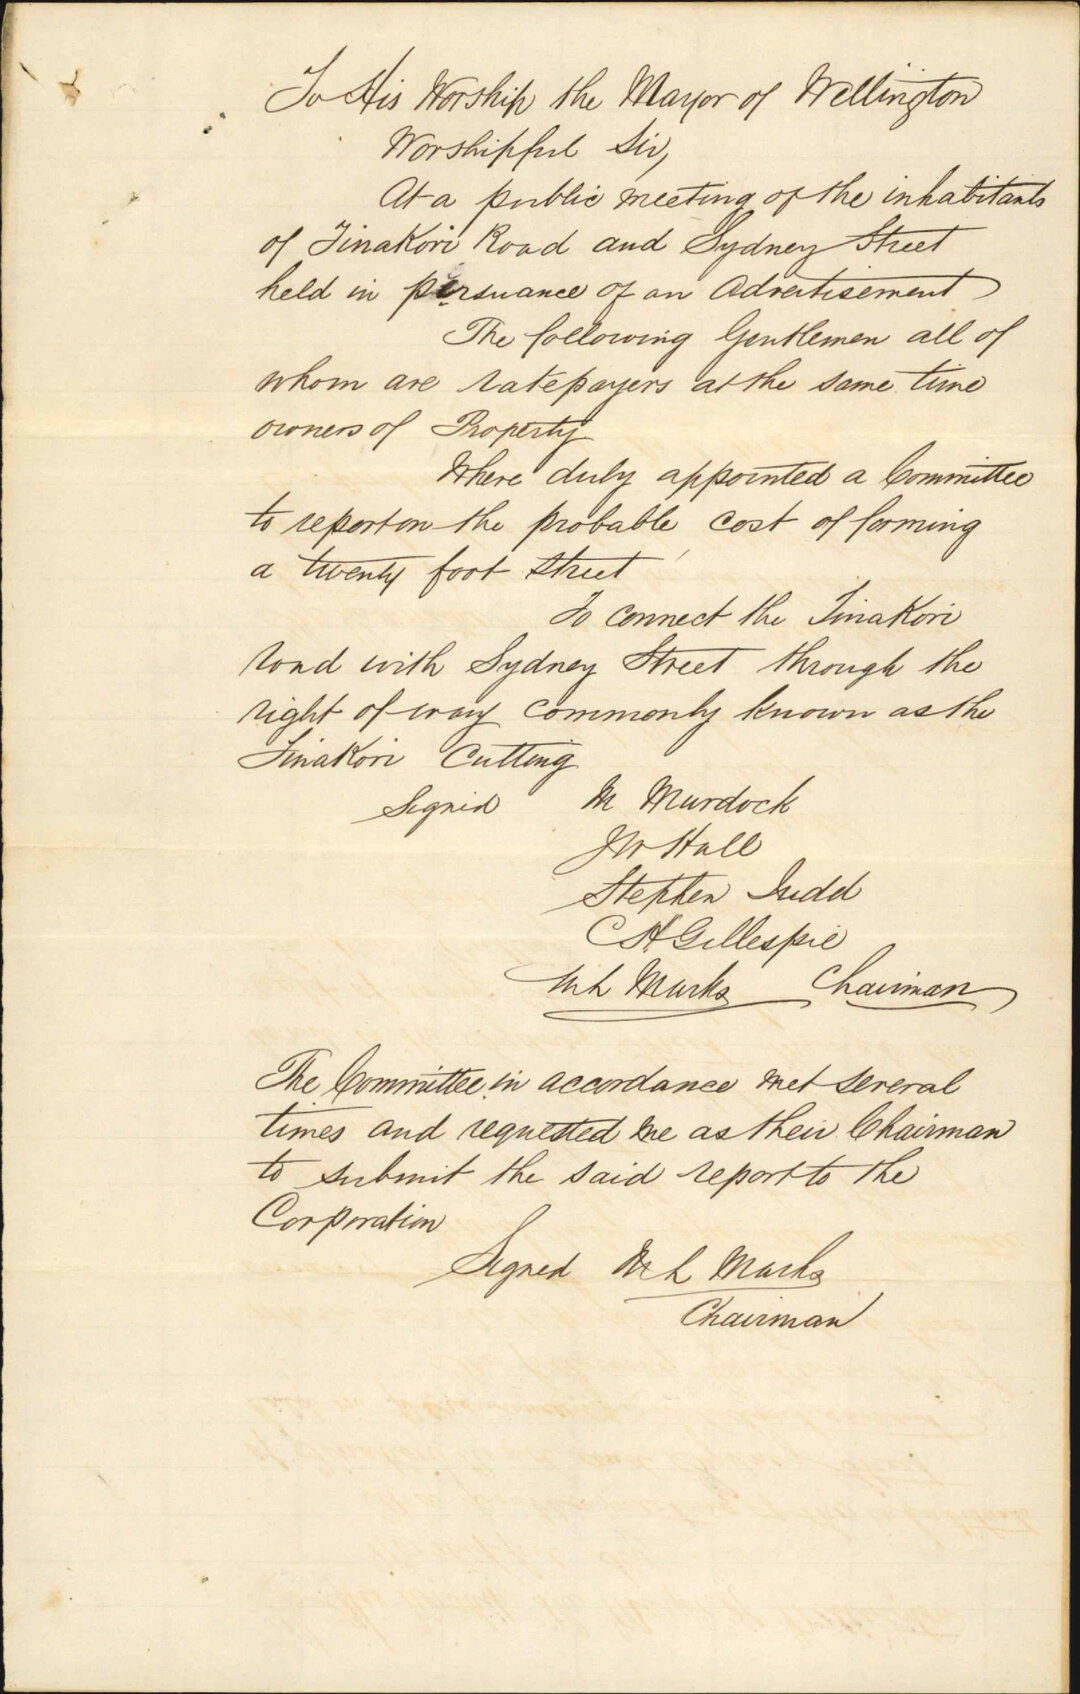 To His Worship the Mayor of Wellington
Worshipful Sir,
At a public meeting of the inhabitants
of TinaKori Road and Sydney Street
held in persuance of an Advertisement
The following Gentlemen all of
whom are ratepayers at the same time
owners of Property
Where duly appointed a Committee
to report on the probable cost of forming
a twenty foot street
To connect the TinaKori
road with Sydney Street through the
right of way commonly known as the
TinaKori Cutting
Signed M Murdock
JW Hall
Stephen Judd
C H Gillespie
Marks Chairman
The Committee in accordance met several
times and requested me as their Chairman
to submit the said report to the
Corporation
Signed Marks
Chairman